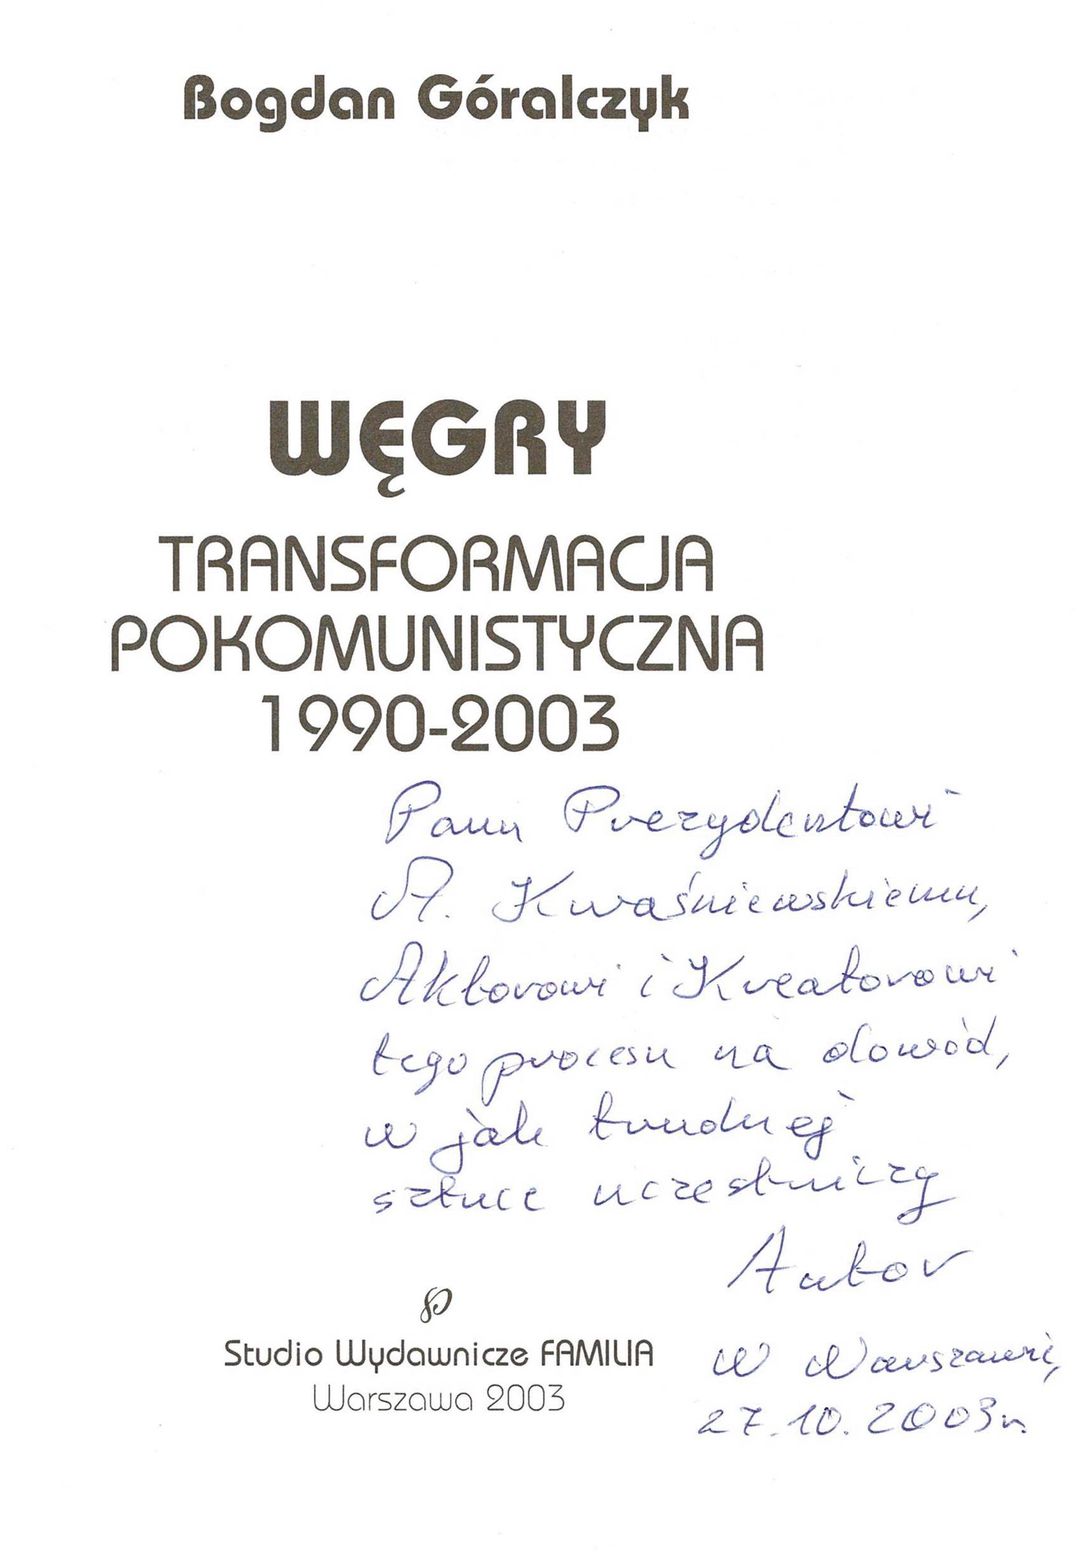 Bogdan Góralczyk
WĘGRY
TRANSFORMACJA
POKOMUNISTYCZNA
1990-2003
Panu Prezydentowi
A. Kwaśniewskiemu,
Aktorowi i Kreatorowi
tego procesu na dowód,
w jak trudnej
sztuce uczestniczy
Autor
Studio Wydawnicze FAMILIA
Warszawa 2003
W Warszawie,
27.10.2003r.